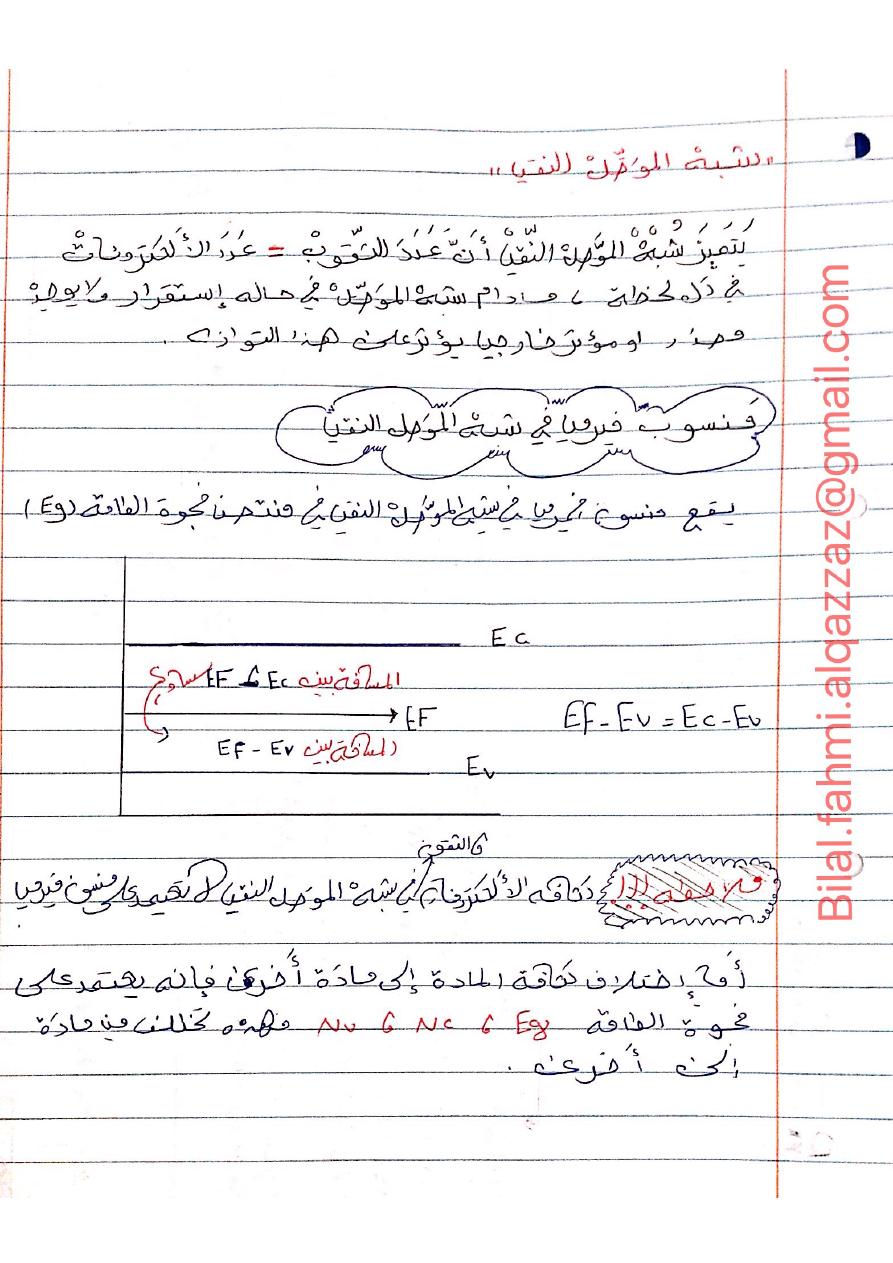 "شبه الموصل النقي"
يتميز شبه الموصل النقي أن عدد الثقوب = عدد الألكترونات
في كل لحظة ، مادام شبه الموصل في حاله إستقرار ولا يوجد
مصدر او مؤثر خارجي يؤثر على هذا التوازن .
منسوب فيرمي في شبه الموصل النقي
يقع منسوب فيرمي في شبه الموصل النقي في منتصف فجوة الطاقة (Eg)
Ec
المسافة بين Ec و EF تساوي
EF
Ef - Ev = Ec - Ev
المسافة بين Ef - Ev
Ev
و الثقوب
ملاحظه !!! كثافه الألكترونات في شبه الموصل النقي لا تعتمد على منسوب فيرمي
أما إختلاف كثافة المادة إلى مادة أخرى فإنه يعتمد على
فجوة الطاقه Eg و Nc و Nv وهذه تختلف من مادة
إلى أخرى .
Bilal.fahmi.alqazzaz@gmail.com